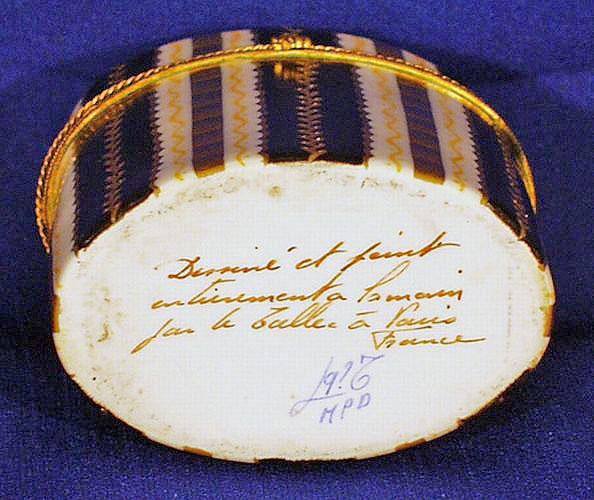 Dessiné et peint
entièrement a la main
par le Tallec à Paris
France
MPD